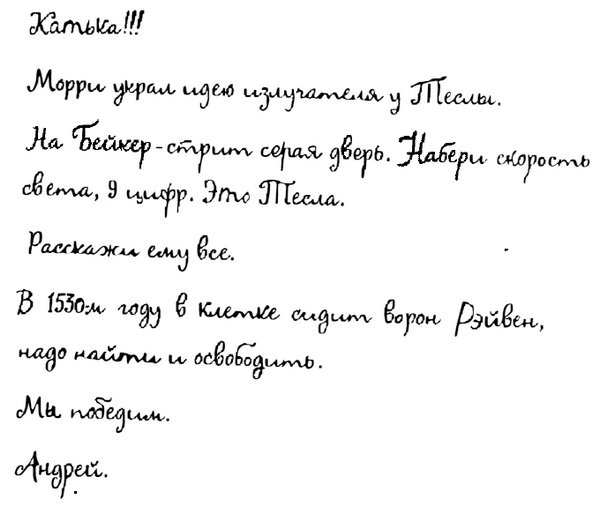 Катька!!!
Морри украл идею излучателя у Теслы.
На Бейкер-стрит серая дверь. Набери скорость
света, 9 цифр. Это Тесла.
Расскажи ему все.
В 1530-м году в клетке сидит ворон Рэйвен,
надо найти и освободить.
Мы победим.
Андрей.